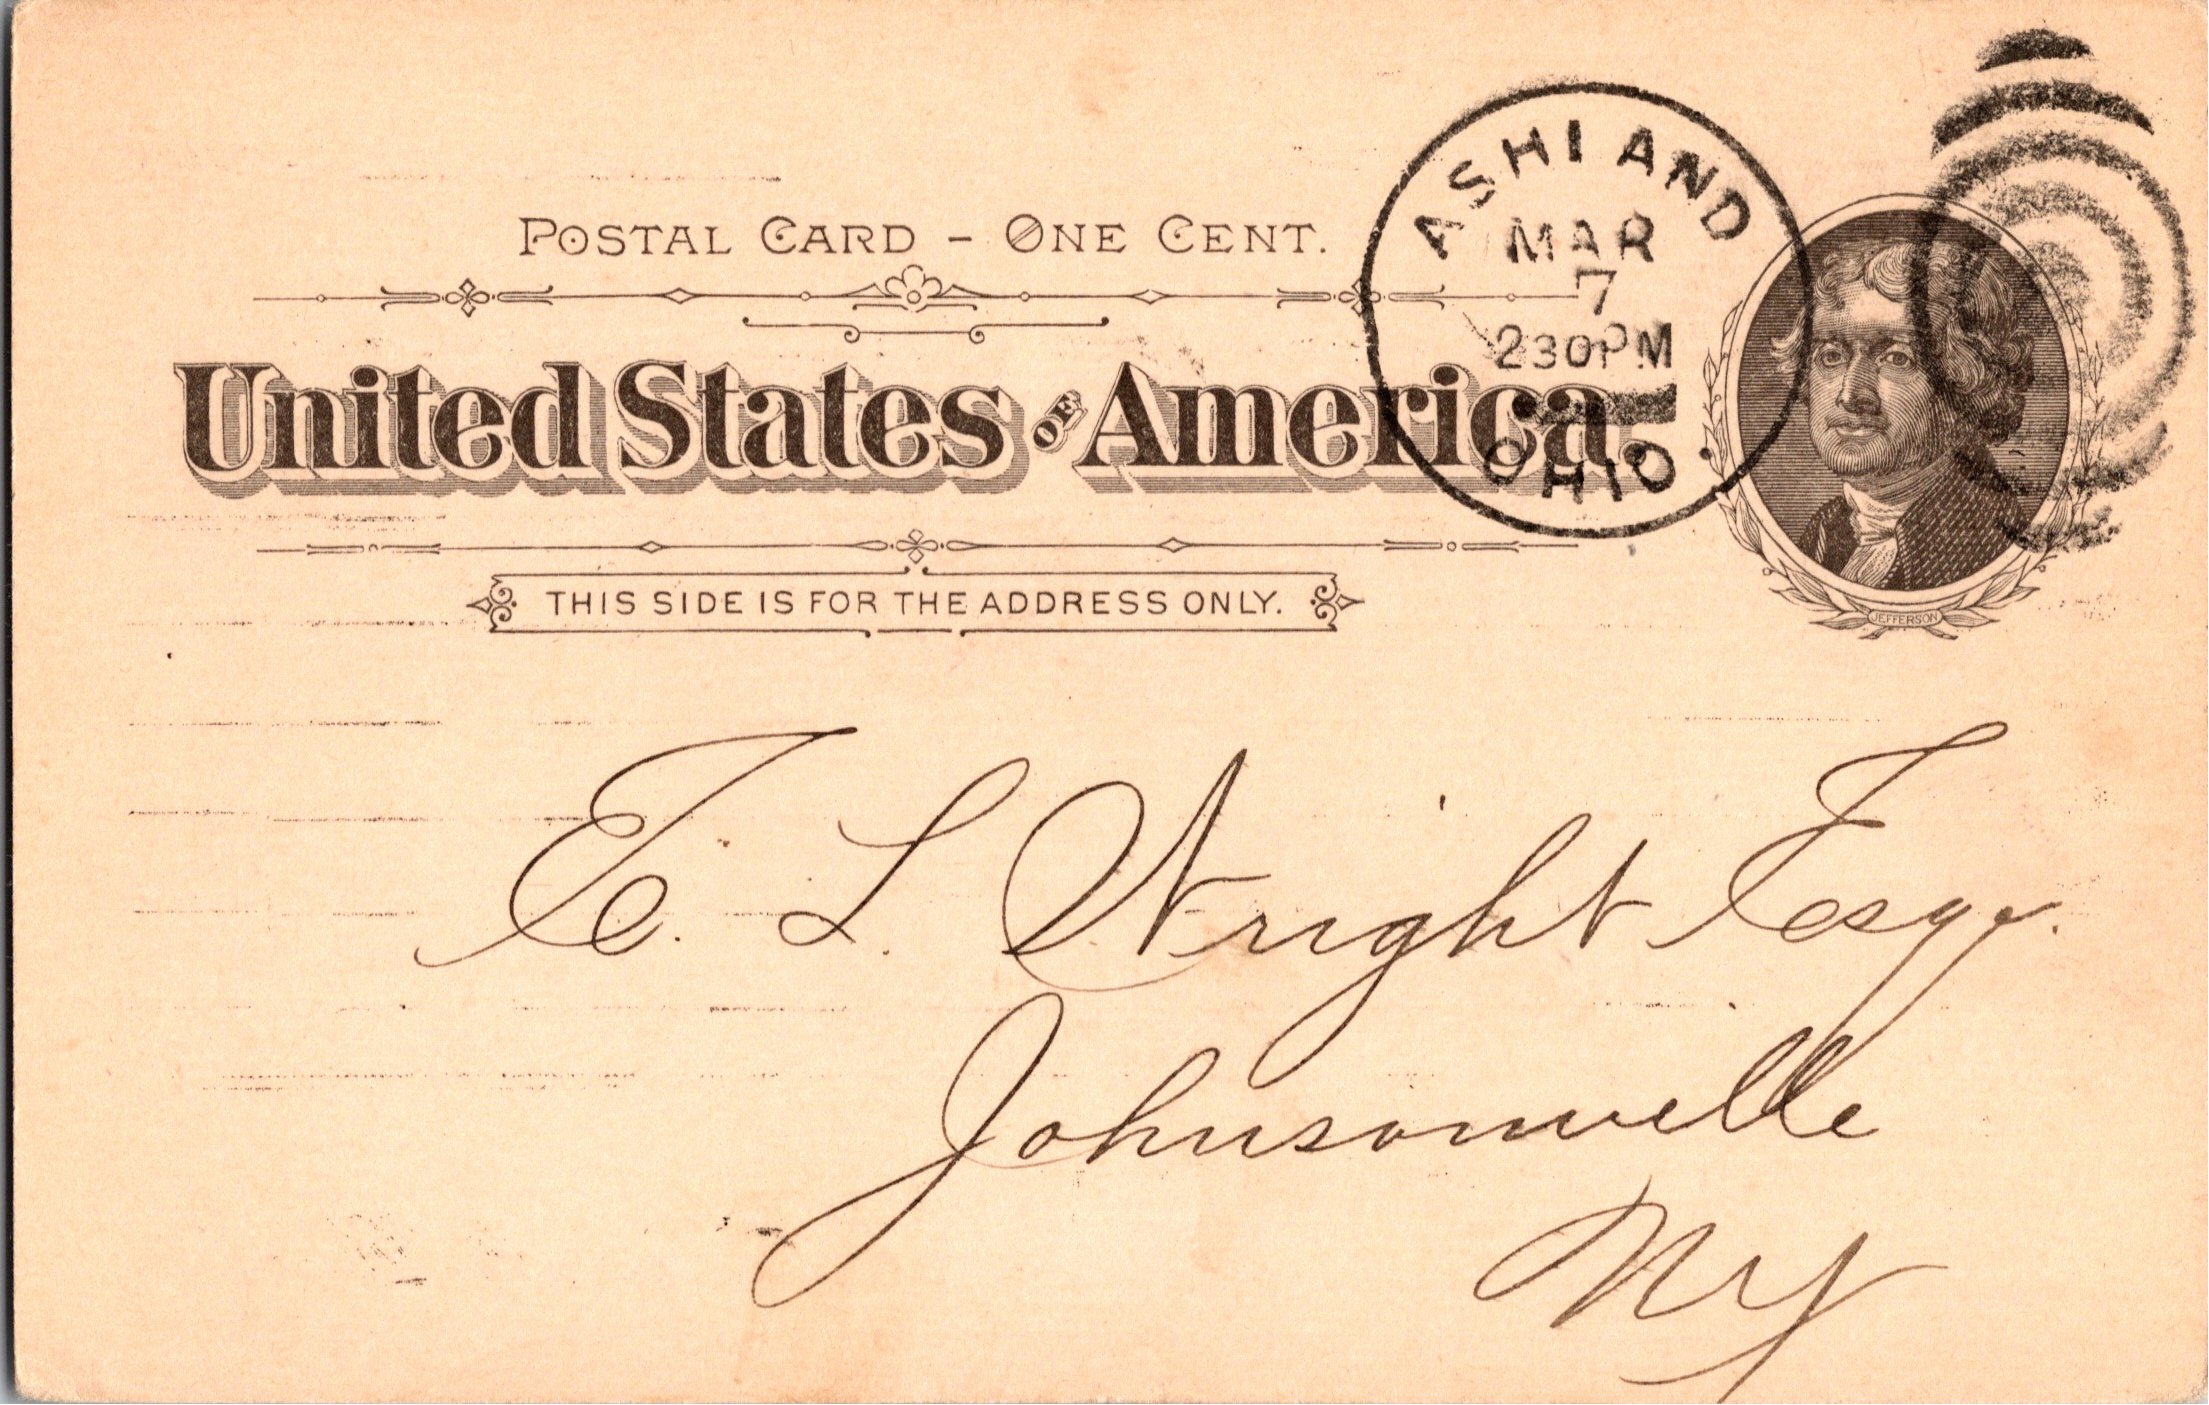 POSTAL CARD - ONE CENT.
United States OF America.
THIS SIDE IS FOR THE ADDRESS ONLY.
ASHLAND
MAR
7
230PM
OHIO.
JEFFERSON
E. L. Wright Esqr.
Johnsonville
NY